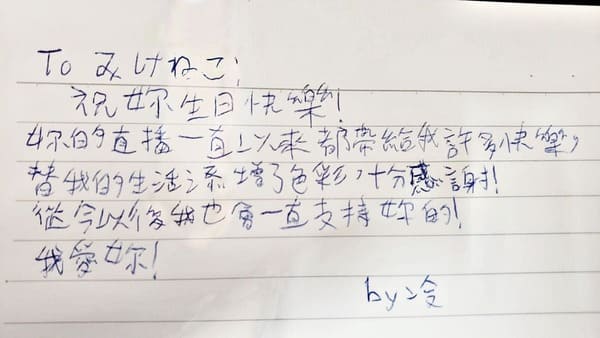 To みけねこ:
祝妳生日快樂!
妳的直播一直以來都帶給我許多快樂,
替我的生活添增了色彩,十分感謝!
從今以後我也會一直支持妳的!
我愛妳!
by 冷